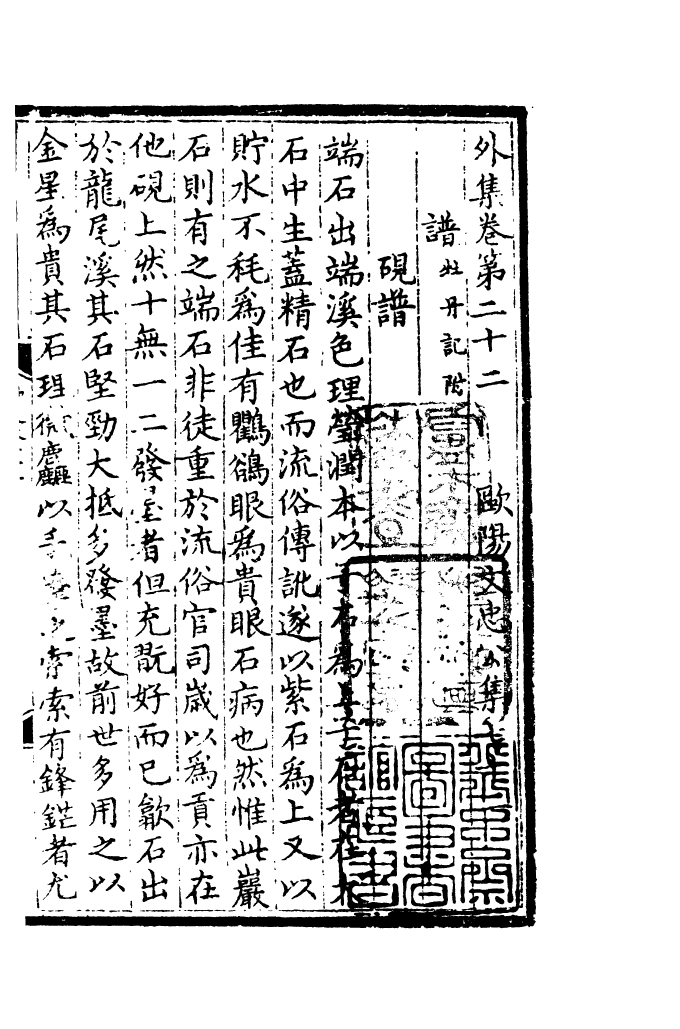 外集卷第二十二 歐陽文忠公集七十二
譜 牡丹記附
硯譜
端石出端溪色理瑩潤本以子石為上子石者在大
石中生蓋精石也而流俗傳訛遂以紫石為上又以
貯水不耗為佳有鸜鵒眼為貴眼石病也然惟此巖
石則有之端石非徒重於流俗官司歲以為貢亦在
他硯上然十無一二發墨者但充翫好而已歙石出
於龍尾溪其石堅勁大抵多發墨故前世多用之以
金星為貴其石理微麤以手摩之索索有鋒鋩者尤